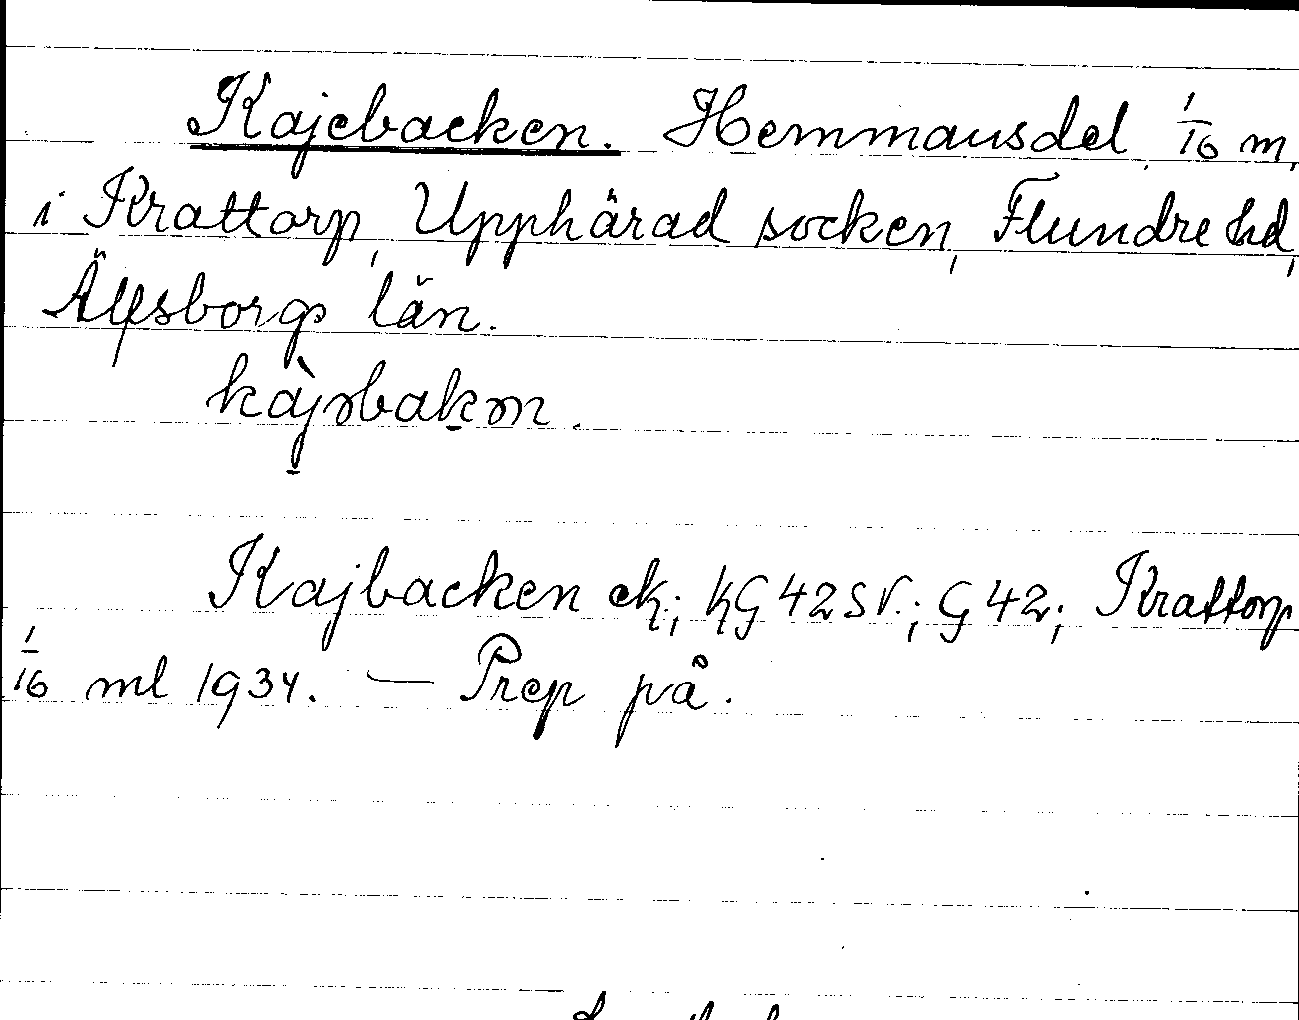 Kajebacken. Hemmansdel 1/16 m,
i Krattorp, Upphärad socken, Flundre hd,
Älfsborgs län.
Kajbacken ek; KG 42 SV.; G 42; Krattorp
1/16 ml 1934. — Prep på.